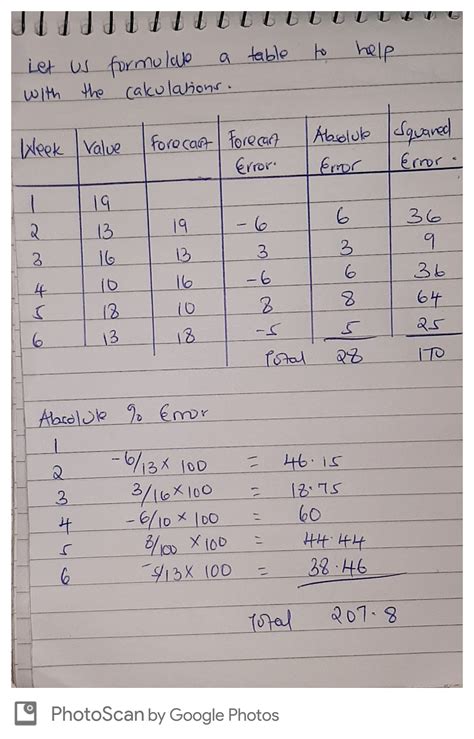 Let us formulate a table to help
with the calculations.
Week Value Forecast Forecast Error. Absolute Error Squared Error.
1 19
2 13 19 -6 6 36
3 16 13 3 3 9
4 10 16 -6 6 36
5 18 10 8 8 64
6 13 18 -5 5 25
Total 28 170
Absolute % Error
1
2 -6/13 × 100 = 46.15
3 3/16 × 100 = 18.75
4 -6/10 × 100 = 60
5 8/100 × 100 = 44.44
6 -5/13 × 100 = 38.46
Total 207.8
PhotoScan by Google Photos